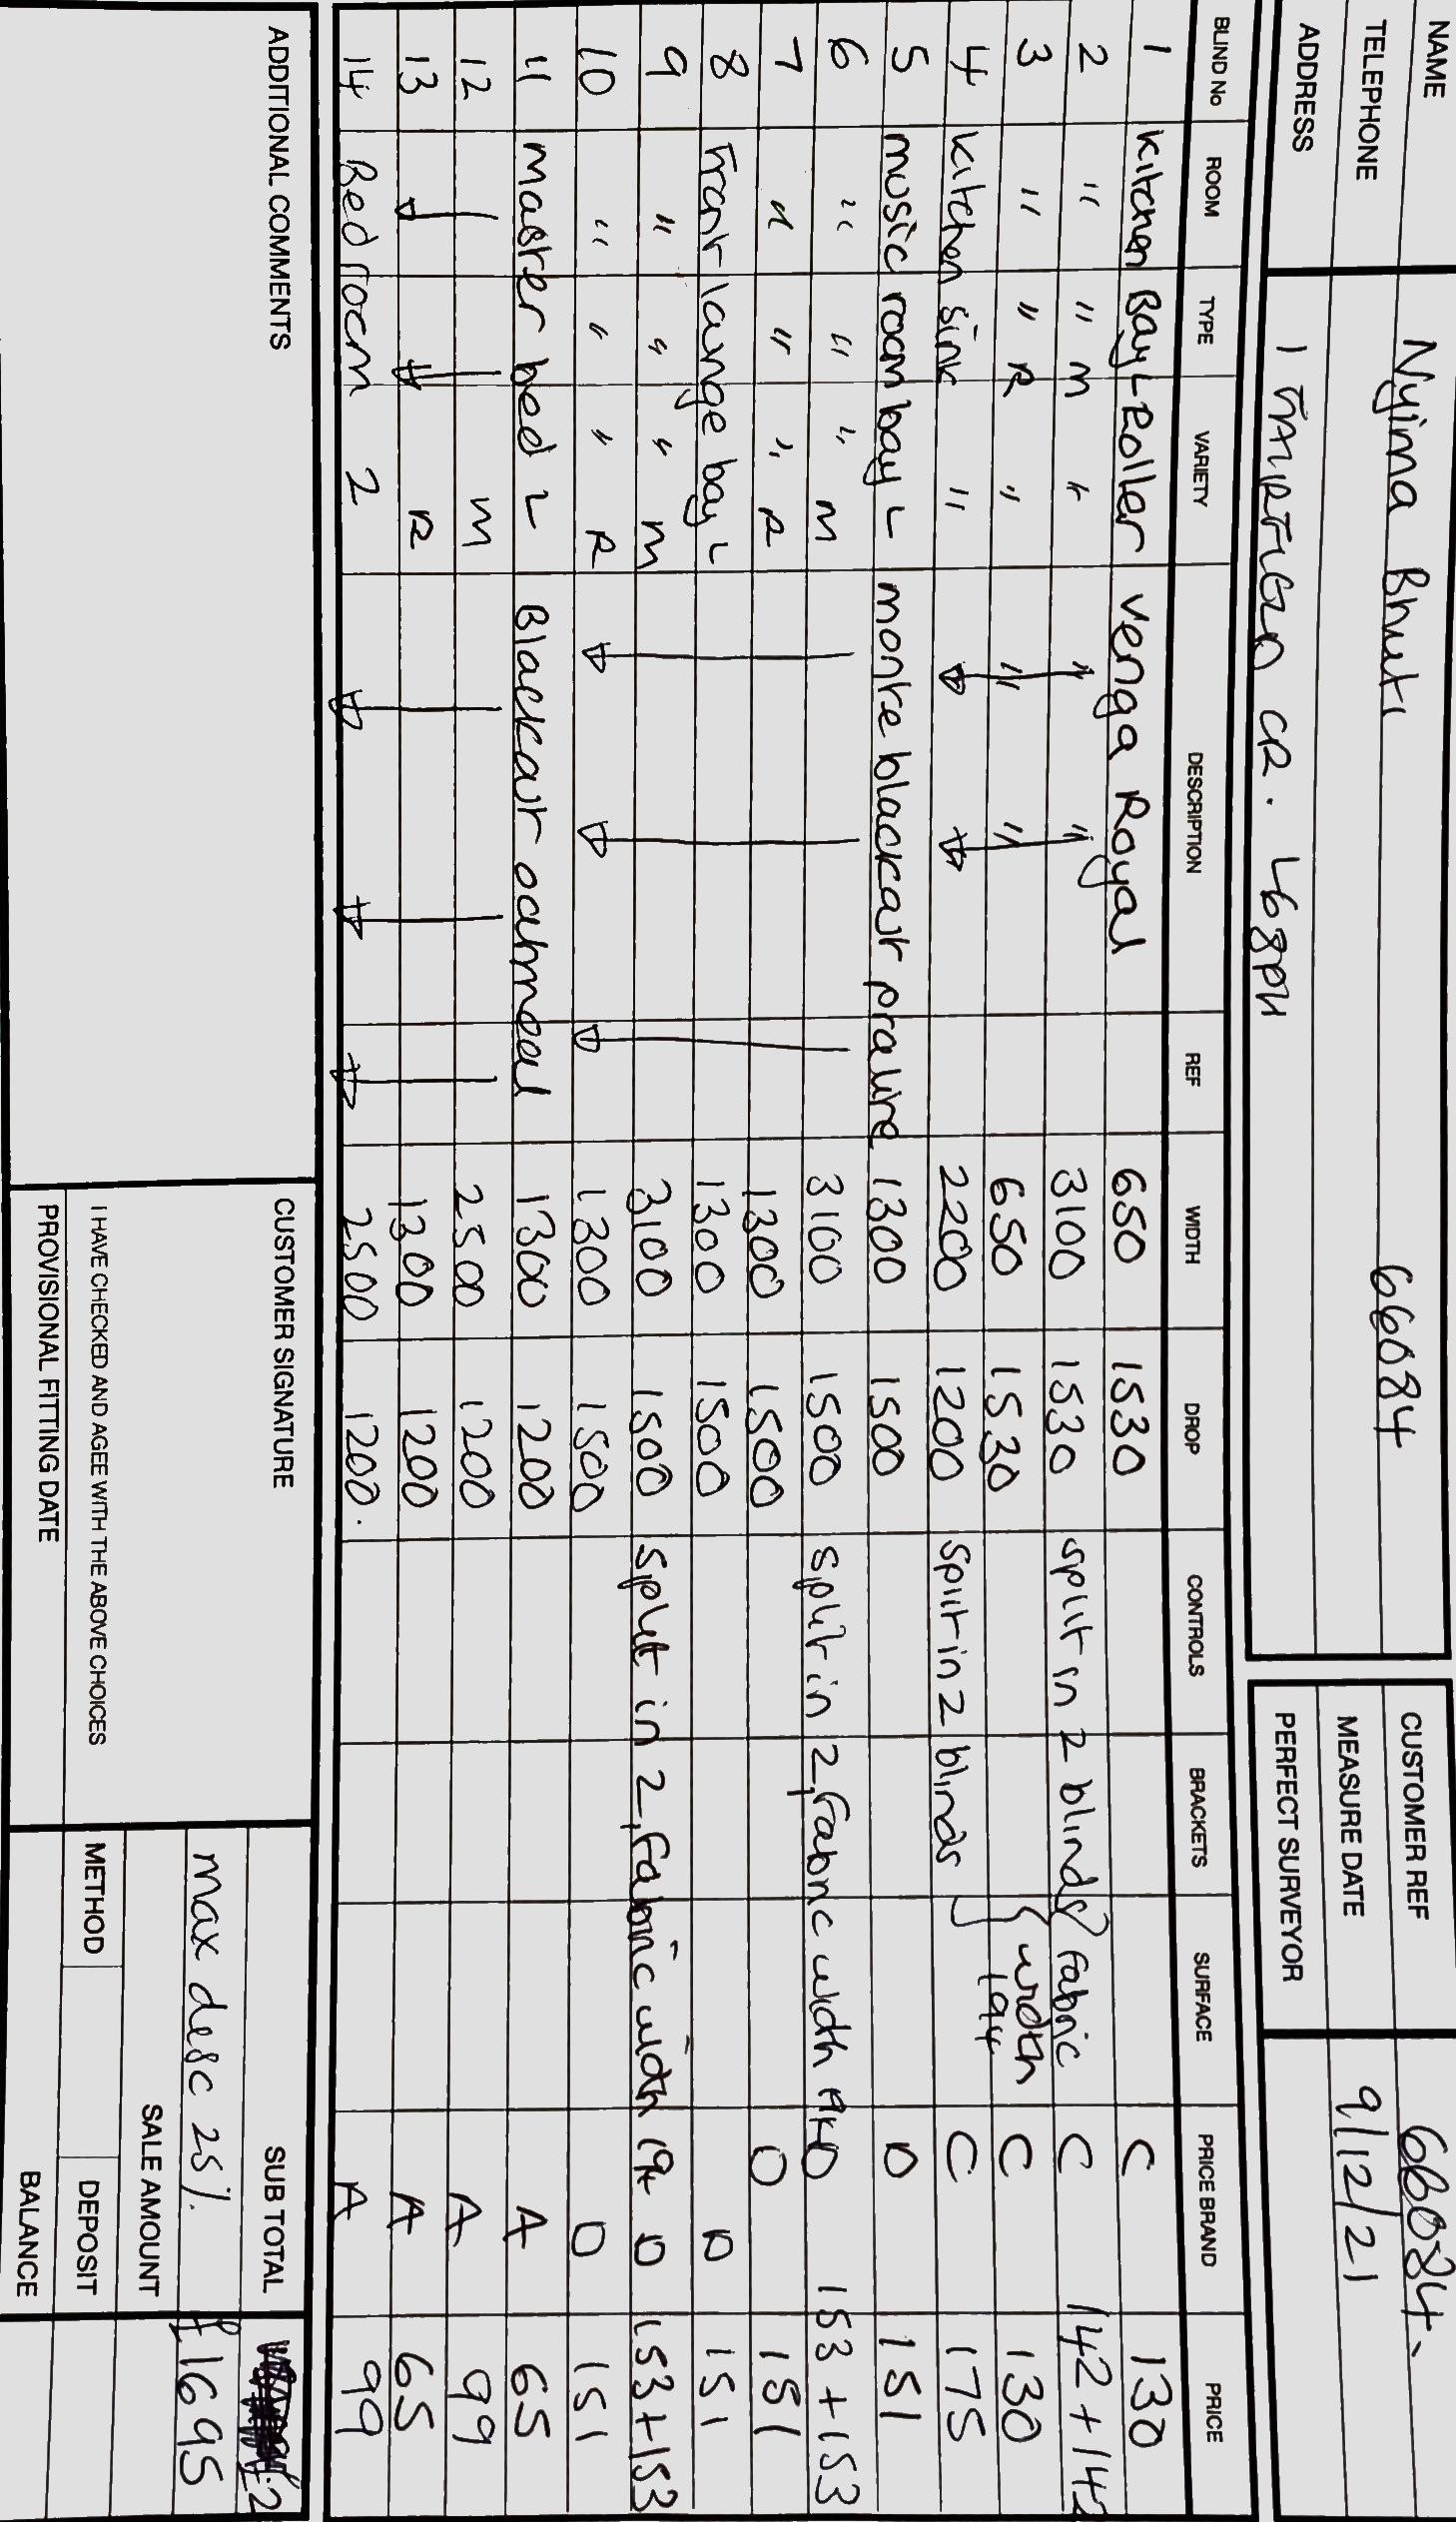 NAME Nyima Bhuti
TELEPHONE 66084
ADDRESS 1 CR. L6 8PH
CUSTOMER REF 66084
MEASURE DATE 9/12/21
PERFECT SURVEYOR
BLIND No ROOM TYPE VARIETY DESCRIPTION REF WIDTH DROP CONTROLS BRACKETS SURFACE PRICE BRAND PRICE
1 Kitchen Bay L Roller Venga Royal 650 1530 C 130
2 " " M " " " 3100 1530 split in 2 blinds } Fabric C 142 + 142
3 " " R " " " 650 1530 width C 130
4 Kitchen sink " 2200 1200 split in 2 blinds } 194 C 175
5 music room bay L monte blackout praline 1300 1500 D 151
6 " " " M 3100 1500 split in 2, Fabric width D 153 + 153
7 " " " R 1300 1500 D 151
8 Front lounge bay L 1300 1500 D 151
9 " " " M 3100 1500 split in 2, Fabric width 194 D 153 + 153
10 " " " R 1300 1500 D 151
11 Master bed L Blackout oatmeal 1300 1200 A 65
12 M 2500 1200 A 99
13 R 1300 1200 A 65
14 Bedroom 2 2500 1200. A 99
ADDITIONAL COMMENTS
CUSTOMER SIGNATURE
I HAVE CHECKED AND AGEE WITH THE ABOVE CHOICES
PROVISIONAL FITTING DATE
SUB TOTAL
max desc 25%. £1695
SALE AMOUNT
METHOD DEPOSIT
BALANCE